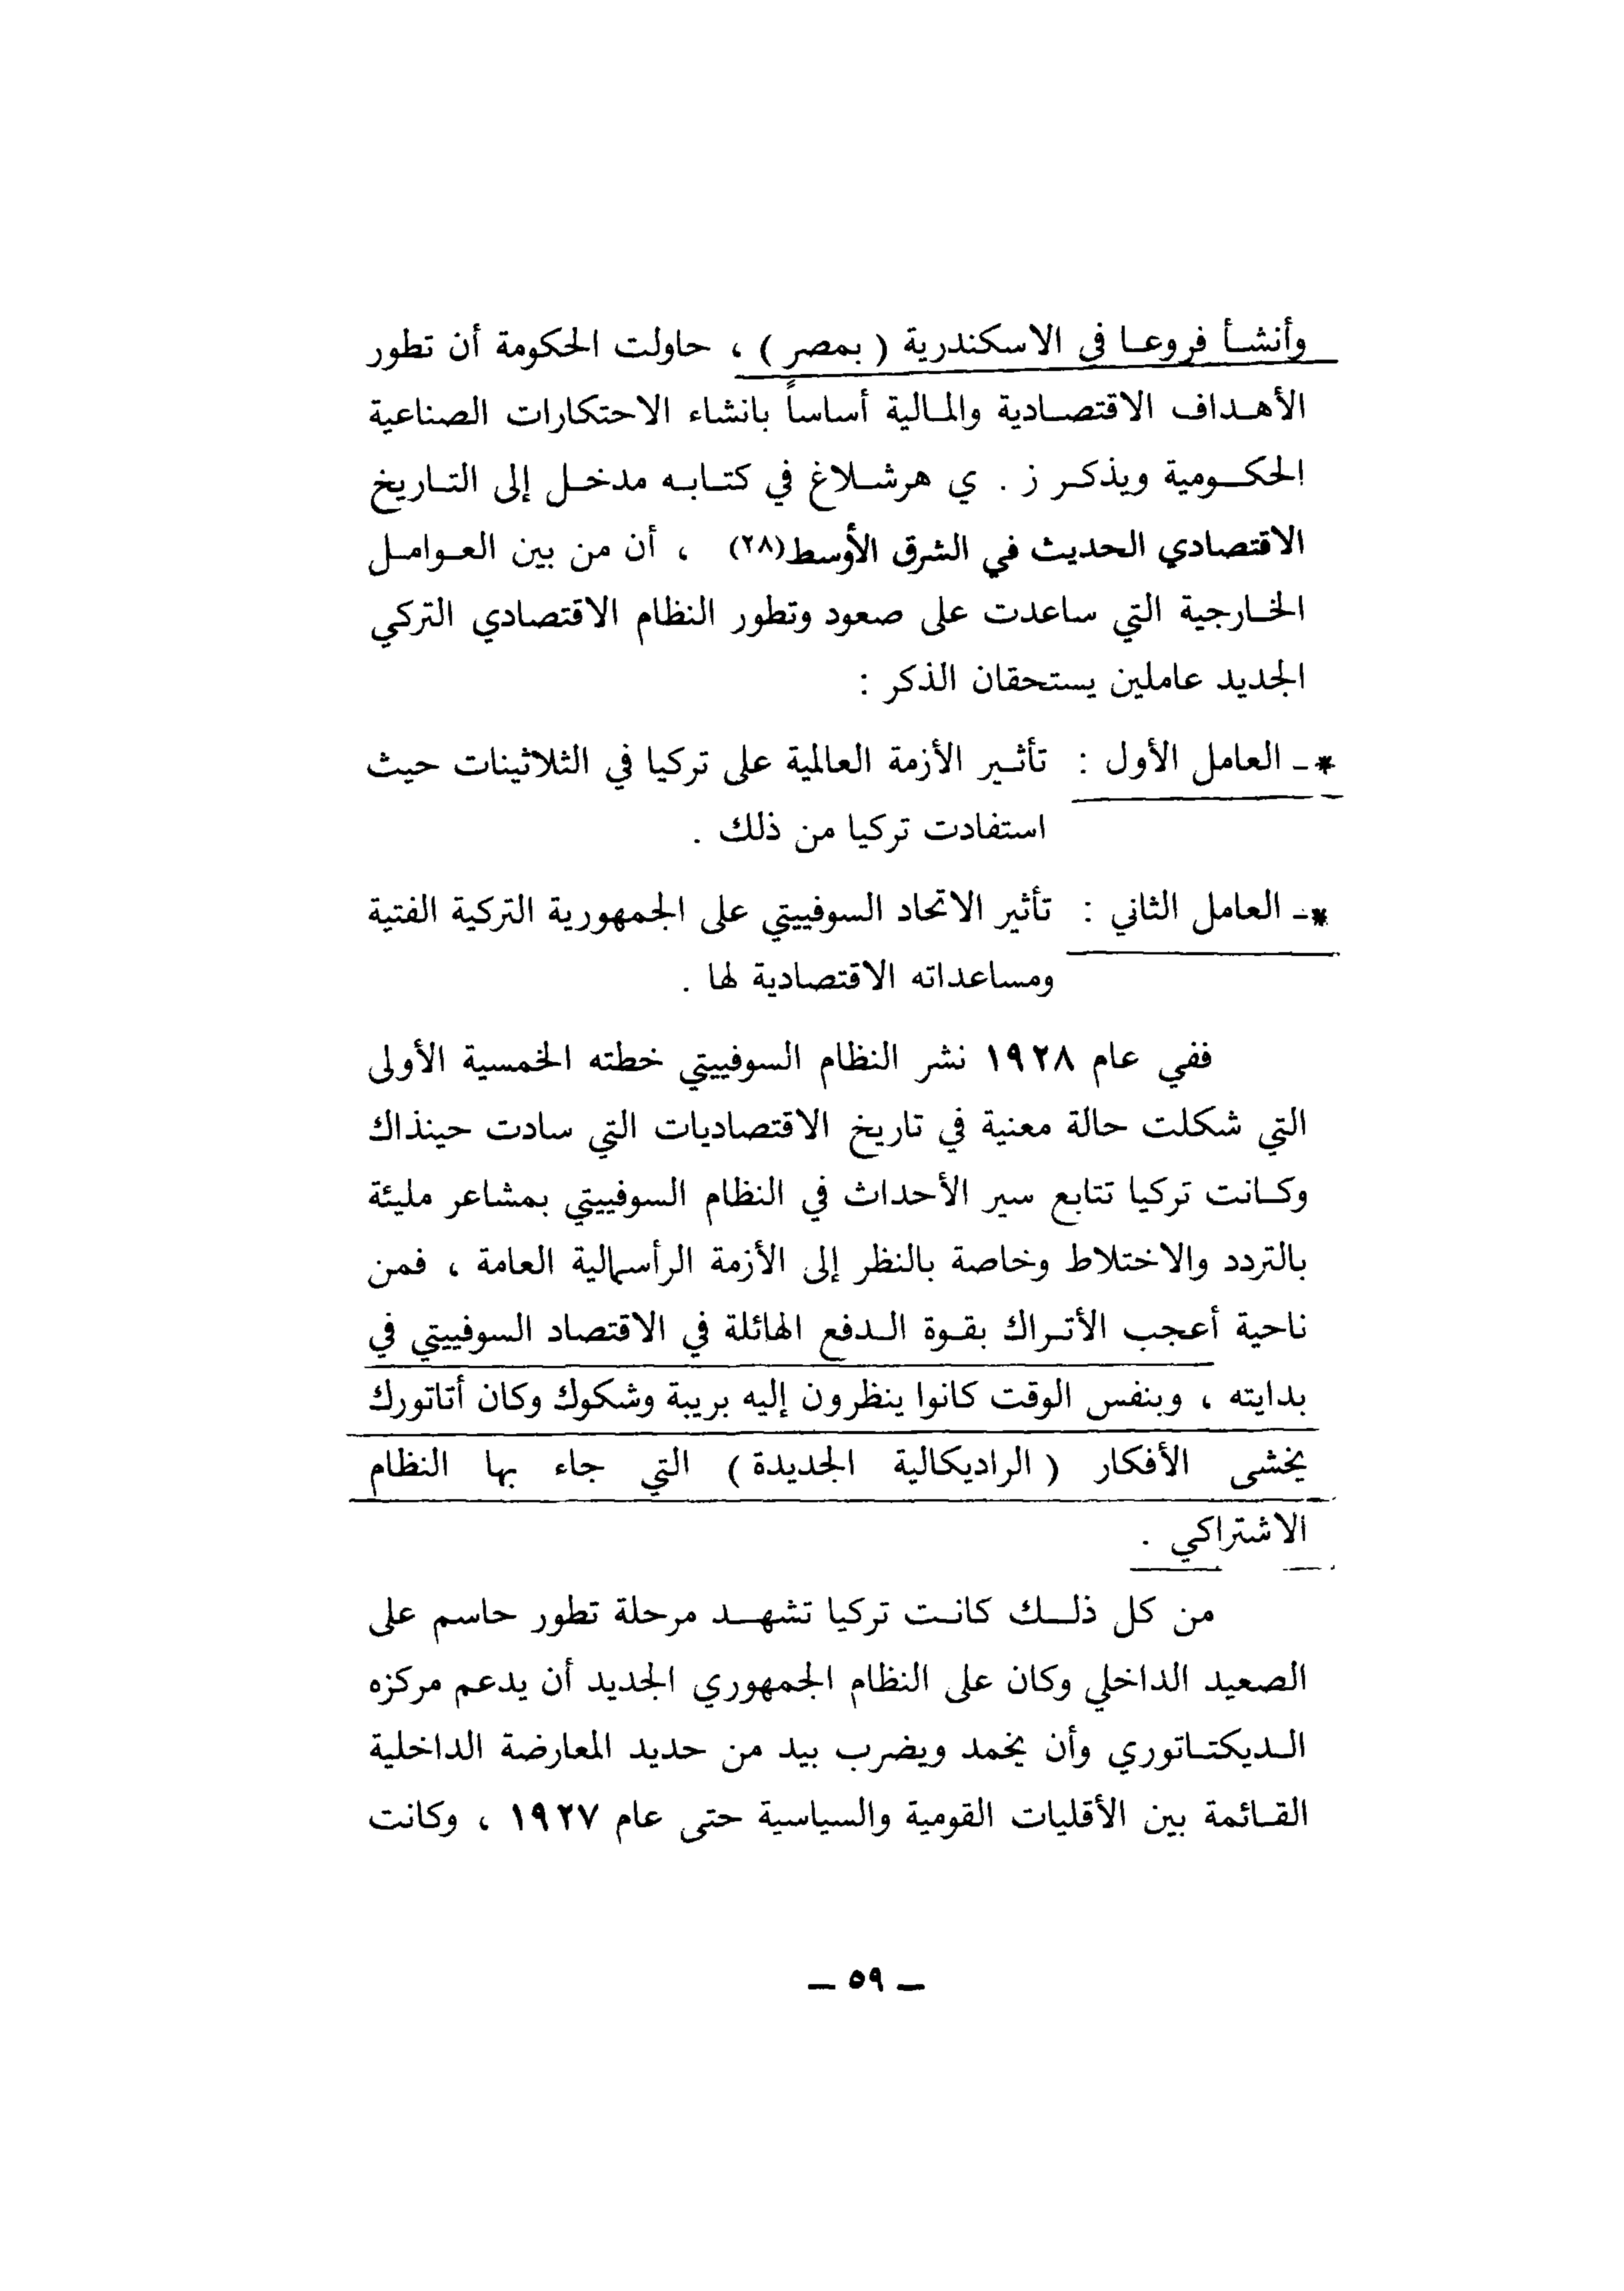 وأنشأ فروعا في الاسكندرية ( بمصر ) ، حاولت الحكومة أن تطور
الأهداف الاقتصادية والمالية أساساً بانشاء الاحتكارات الصناعية
الحكومية ويذكر ز . ي هرشلاغ في كتابه مدخل إلى التاريخ
الاقتصادي الحديث في الشرق الأوسط(٢٨) ، أن من بين العوامل
الخارجية التي ساعدت على صعود وتطور النظام الاقتصادي التركي
الجديد عاملين يستحقان الذكر :
*ـ العامل الأول : تأثير الأزمة العالمية على تركيا في الثلاثينات حيث
استفادت تركيا من ذلك .
*ـ العامل الثاني : تأثير الاتحاد السوفييتي على الجمهورية التركية الفتية
ومساعداته الاقتصادية لها .
ففي عام ١٩٢٨ نشر النظام السوفييتي خطته الخمسية الأولى
التي شكلت حالة معنية في تاريخ الاقتصاديات التي سادت حينذاك
وكانت تركيا تتابع سير الأحداث في النظام السوفييتي بمشاعر مليئة
بالتردد والاختلاط وخاصة بالنظر إلى الأزمة الرأسمالية العامة ، فمن
ناحية أعجب الأتراك بقوة الدفع الهائلة في الاقتصاد السوفييتي في
بدايته ، وبنفس الوقت كانوا ينظرون إليه بريبة وشكوك وكان أتاتورك
يخشى الأفكار ( الراديكالية الجديدة ) التي جاء بها النظام
الاشتراكي .
من كل ذلك كانت تركيا تشهد مرحلة تطور حاسم على
الصعيد الداخلي وكان على النظام الجمهوري الجديد أن يدعم مركزه
الديكتاتوري وأن يخمد ويضرب بيد من حديد المعارضة الداخلية
القائمة بين الأقليات القومية والسياسية حتى عام ١٩٢٧ ، وكانت
ـ ٥٩ ـ